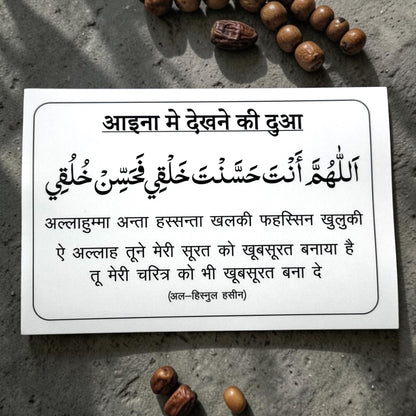 आइना मे देखने की दुआ
اَللّٰهُمَّ أَنْتَ حَسَّنْتَ خَلْقِي فَحَسِّنْ خُلُقِي
अल्लाहुम्मा अन्ता हस्सन्ता खलकी फहस्सिन खुलुकी
ऐ अल्लाह तूने मेरी सूरत को खूबसूरत बनाया है
तू मेरी चरित्र को भी खूबसूरत बना दे
(अल–हिस्नुल हसीन)